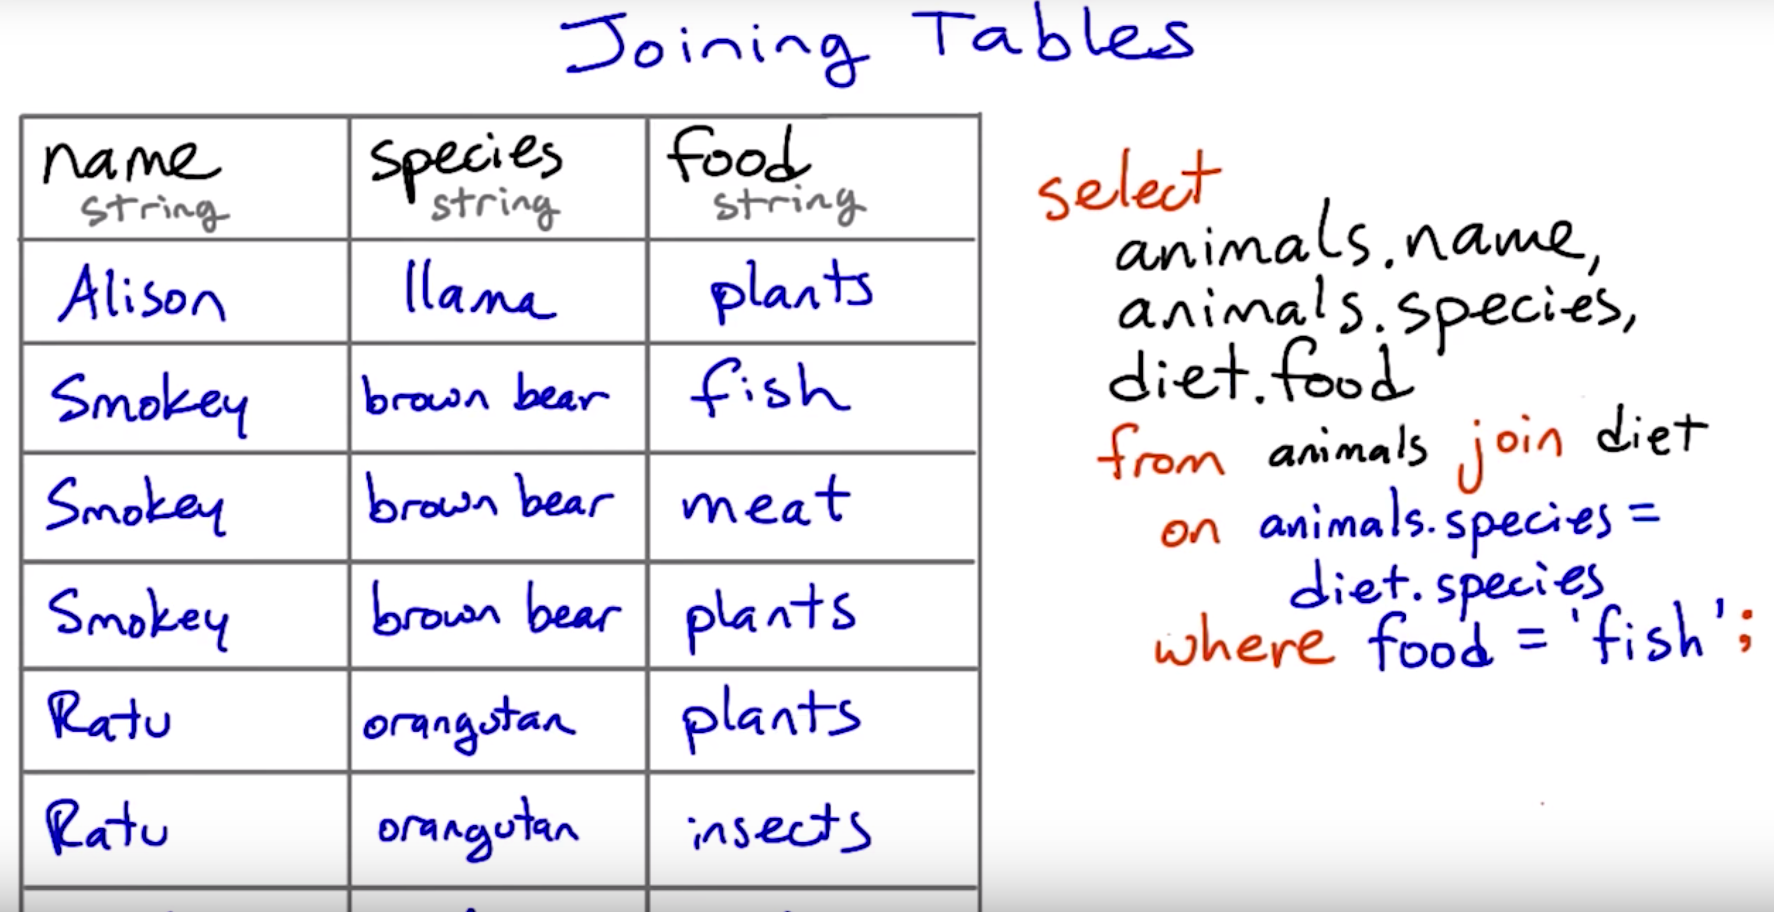 Joining Tables
name species food
string string string
Alison llama plants
Smokey brown bear fish
Smokey brown bear meat
Smokey brown bear plants
Ratu orangutan plants
Ratu orangutan insects
select
animals.name,
animals.species,
diet.food
from animals join diet
on animals.species =
diet.species
where food = 'fish';